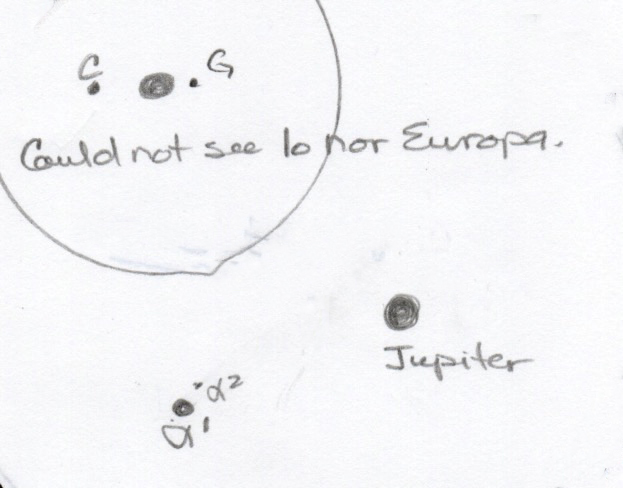 C G
Could not see Io nor Europa.
Jupiter
α²
α¹